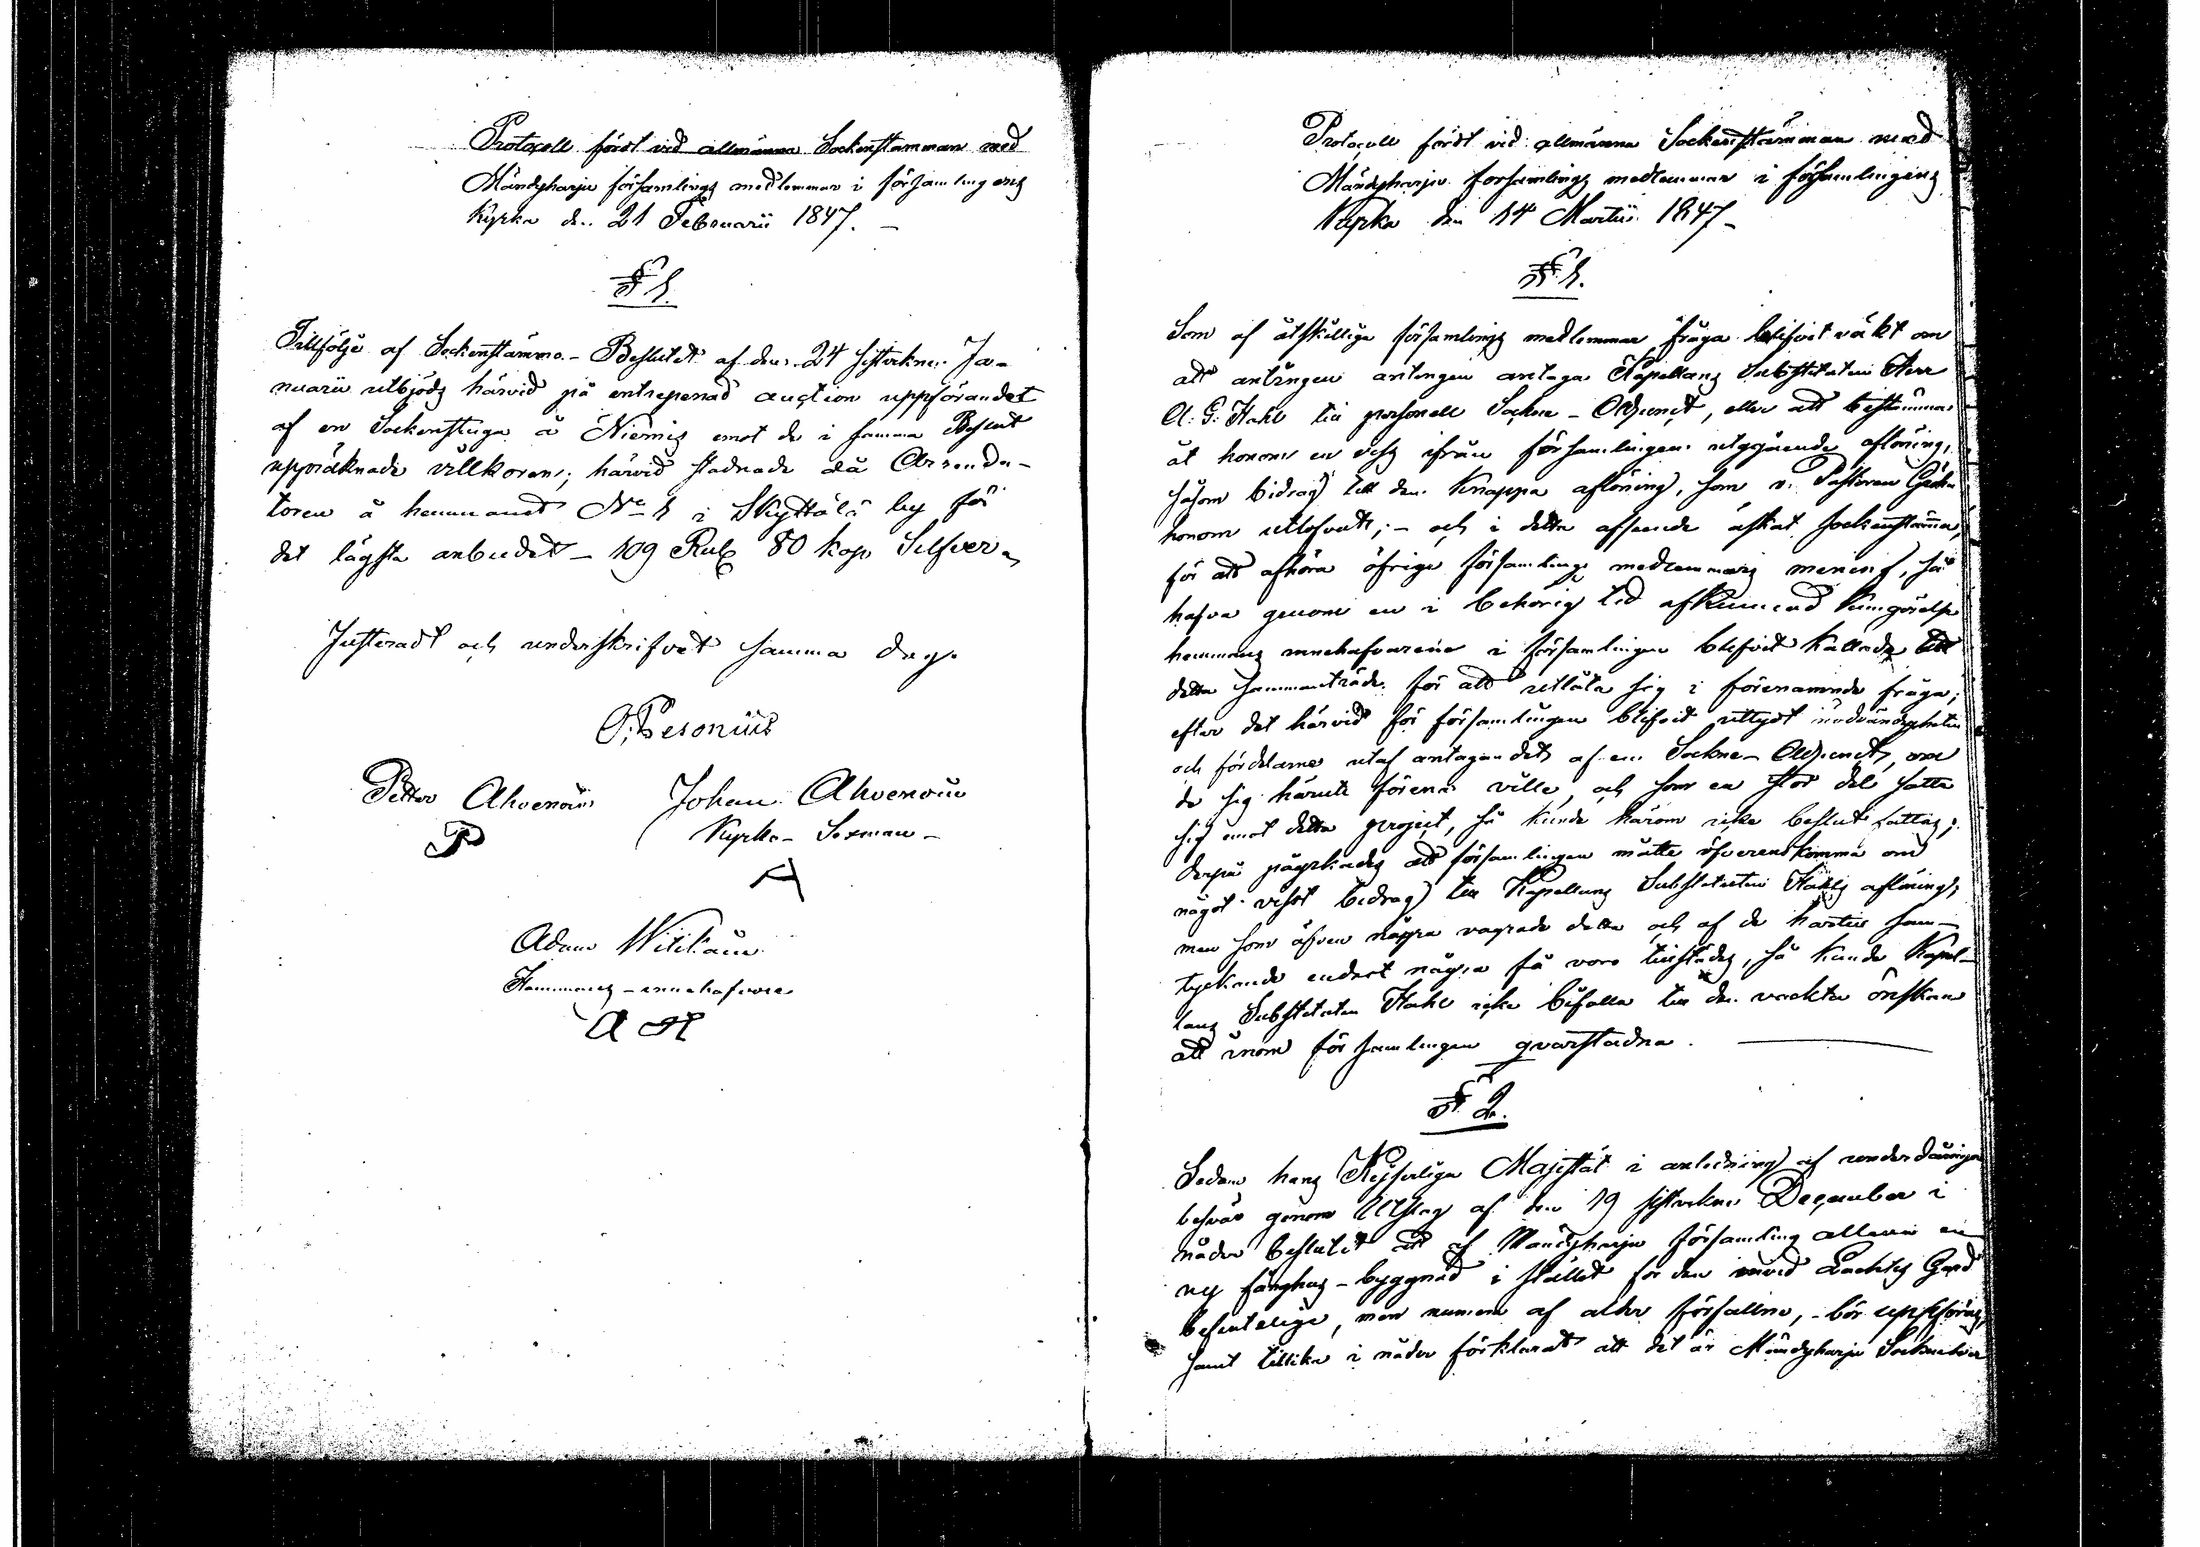 Protocoll fördt vid allmänna Sockenstämman med
Mändyharju församlings medlemmar i församlingens
Kyrka den 21 Februarii 1847. –
§ 1.
Tillfölje af Sockenstämmo-Beslutet af den 24 sistvekne Ja-
nuarii utbjöds härvid på entrepenad auction uppförandet
af en Sockenstuga å Niemis emot de i samma Beslut
uppräknade villkoren; härvid stadnade då Arrenda-
toren å hemmanet No 1 i Skyttälä by för
det lägsta anbudet – 109 Rub 80 kop Silfver.
Justeradt och underskrifvet samma dag.
O. Pesonius
Petter Ahvenain Johan Ahvenain
Kyrko-Sexman –
P
A
Adam Witikain
Hemmans-innehafvare
A H
Protocoll fördt vid allmänna Sockenstämman med
Mändyharju församlings medlemmar i församlingens
Kyrka den 14 Martii 1847 –
§ 1.
Som af åtskillige församlings medlemmar fråga blifvit väkt om
att antingen antingen antaga Kapellans Substituten Herr
A. G. Hahl till personell Sockne-Adjunct, eller att bestämma
åt honom en viss ifrån församlingen utgående aflöning,
såsom bidrag till den knappa aflöning, som v. Pastoren
honom utlofvat; – och i detta afseende äskat sockenstämma,
för att afhöra öfrige församlings medlemmars mening, så
hafva genom en i behörig tid afkunnad kungörelse
hemmans innehafvarene i församlingen blifvit kallade till
detta sammanträde för att utlåta sig i förenämnde fråga;
efter det härvid för församlingen blifvit uttydt nödvändigheten
och fördelarne utaf antagandet af en Sockne-Adjunct, om
de sig häruti förena ville, och som en stor del satte
sig emot detta project, så kunde härom icke beslut fattas;
derpå påyrkades att församlingen måtte öfverenskomma om
något visst bidrag till Kapellans Substituten Hahls aflöning,
men som äfven några vägrade detta och af de härtill sam-
tyckande endast några få voro tillstädes, så kunde Kapel-
lans Substituten Hahl icke bifalla till den väckta önskan
att inom församlingen qvarstadna.
§ 2.
Sedan hans Kejserliga Majestät i anledning af underdåniga
besvär genom Utslag af den 19 sistvekne December i
nåder beslutit att af Mändyharju församling allena en
ny fånghus-byggnad i stället för den invid Lachtis Gård
befintelige, men numera af ålder förfallne, – bör uppföras,
samt tillika i nåder förklarat att det är Mändyharju